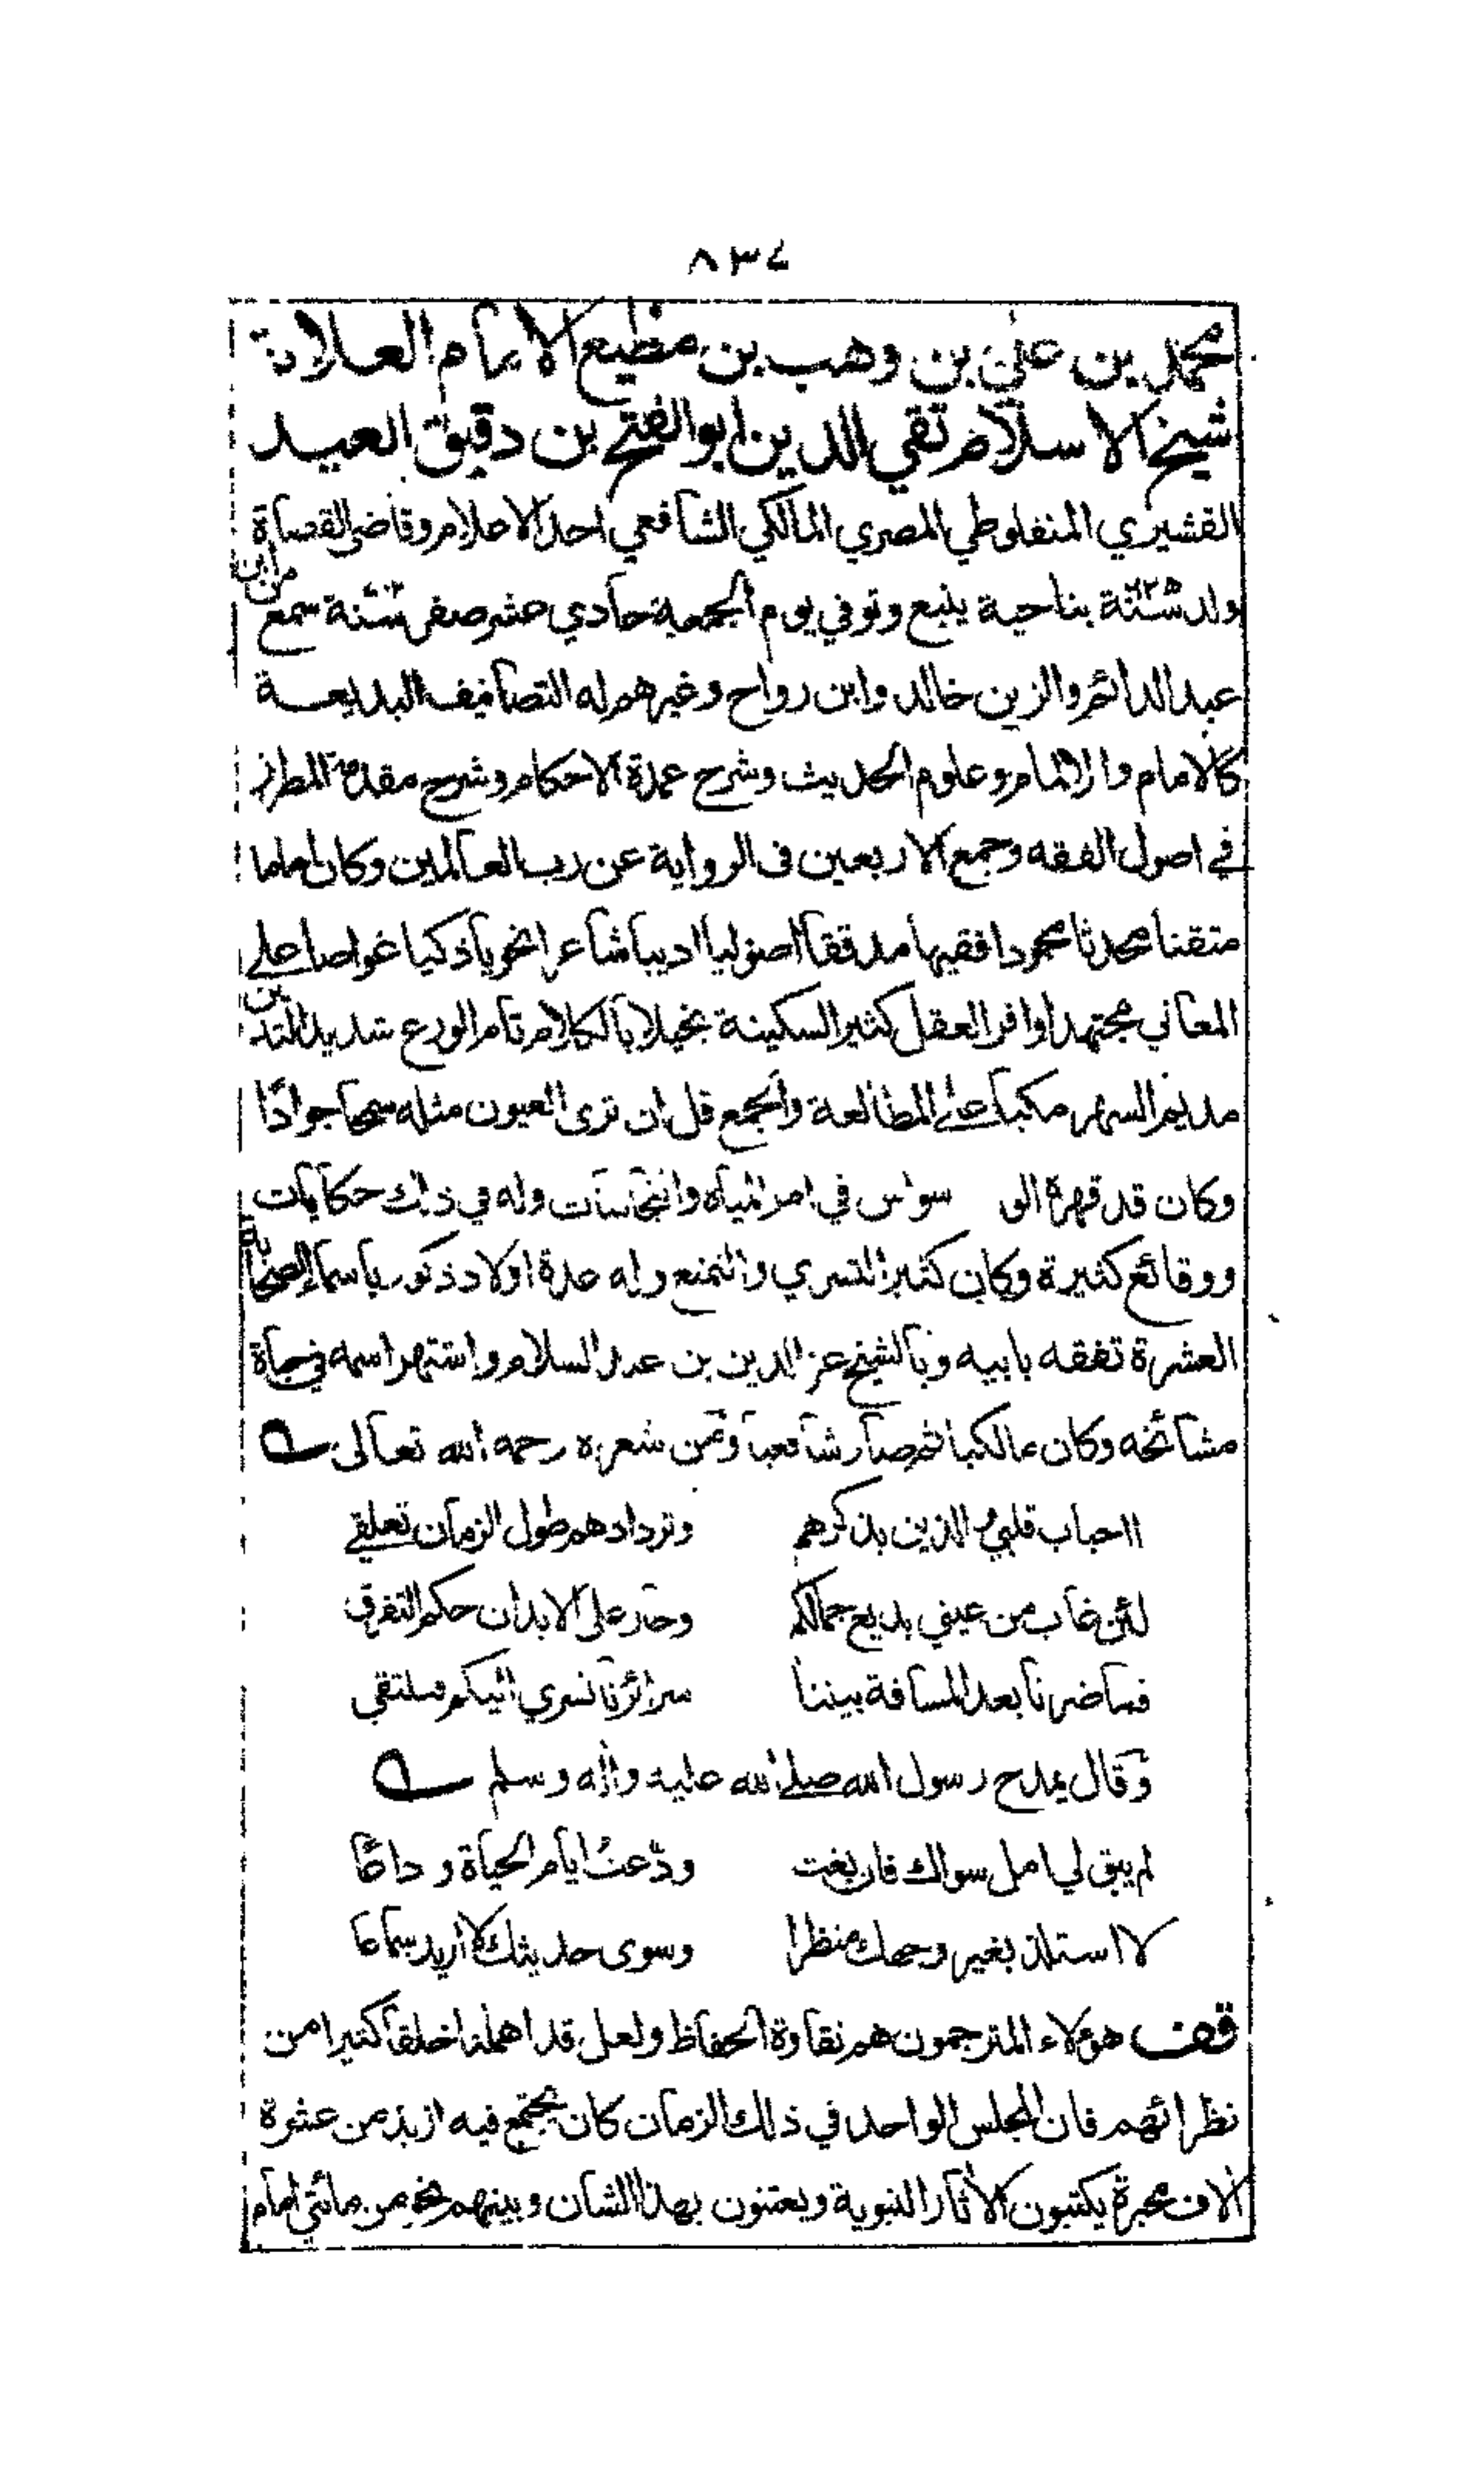 ٨٣٤
محمد بن علي بن وهب بن مطيع الامام العلامة
شيخ الاسلام تقي الدين ابو الفتح بن دقيق العيد
القشيري المنفلوطي المصري المالكي الشافعي احد الاعلام وقاضي القضاة
ولد بناحية ينبع وتوفي يوم الجمعة حادي عشر صفر سمع من ابن
عبد الدائم والزين خالد وابن رواح وغيرهم له التصانيف البديعة
كالامام والالمام وعلوم الحديث وشرح عمدة الاحكام وشرح مقدمة المطرز
في اصول الفقه وجمع الاربعين في الرواية عن رب العالمين وكان اماما
متقنا محدثا مجودا فقيها مدققا اصوليا اديبا شاعرا نحويا ذكيا غواصا على
المعاني مجتهدا وافر العقل كثير السكينة بخيلا بالكلام تام الورع شديد التدين
مديم السهر مكبا على المطالعة والجمع قل ان ترى العيون مثله سمحا جوادًا
وكان قد قهره الو سواس في امر المياه والنجاسات وله في ذلك حكايات
ووقائع كثيرة وكان كثير التسري والتمتع وله عدة اولاد ذكور باسماء الصحابة
العشرة تفقه بابيه وبالشيخ عز الدين بن عبد السلام واشتهر اسمه في حياة
مشائخه وكان مالكيا ثم صار شافعيا ومن شعره رحمه الله تعالى
ااحباب قلبي والذين بذكرهم وترداده طول الزمان تعلقي
لئن غاب من عيني بديع جمالكم وجار على الابدان حكم التفرق
فما ضرنا بعد المسافة بيننا سرائرنا تسري اليكم فلتقي
وقال يمدح رسول الله صلى الله عليه واله وسلم
لم يبق لي امل سواك فان يفت ودّعتُ ايام الحياة وداعًا
لا استلذ بغير وجهك منظرا وسوى حديثك لا اريد سماعا
قف هؤلاء المترجمون هم نقاوة الحفاظ ولعل قد اهملنا خلقا كثيرا من
نظرائهم فان المجلس الواحد في ذلك الزمان كان يجتمع فيه ازيد من عشرة
الاف محبرة يكتبون الاثار النبوية ويعتنون بهذا الشان وبينهم نحو من مائتي امام